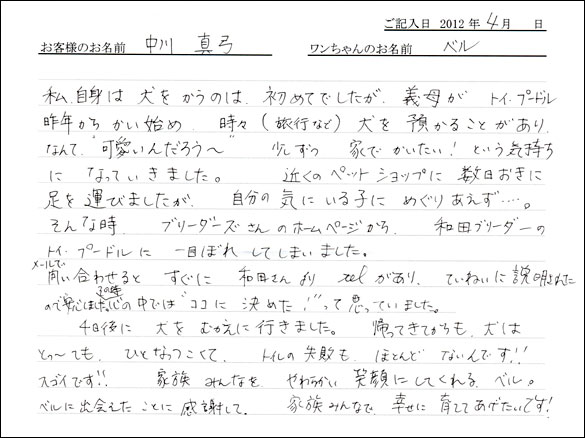 ご記入日 2012年4月 日
お客様のお名前 中川 真弓 ワンちゃんのお名前 ベル
私自身は 犬を かうのは 初めてでしたが、義母が トイ・プードル
昨年から かい始め 時々(旅行など)犬を 預かることがあり、
なんて "可愛いんだろう〜" 少しずつ 家で かいたい!という気持ち
に なっていきました。 近くの ペットショップに 数日おきに
足を 運びましたが、 自分の 気に いる子に めぐりあえず…。
そんな時 ブリーダーズさんの ホームページから 和田ブリーダーの
トイ・プードルに 一目ぼれ してしまいました。
メールで
問い合わせると すぐに 和田さん より telがあり、ていねいに 説明された
その時
ので安心しました。心の中では"ココに 決めた!"って 思っていました。
4日後に 犬を むかえに 行きました。 帰ってきてからも、犬は
とっ〜ても、ひとなつっこくて、トイレの 失敗も ほとんど ないんです!!
スゴイです!! 家族 みんなを やわらかい 笑顔に してくれる ベル。
ベルに出会えた ことに 感謝して、 家族みんなで 幸せに 育てて あげたいです!